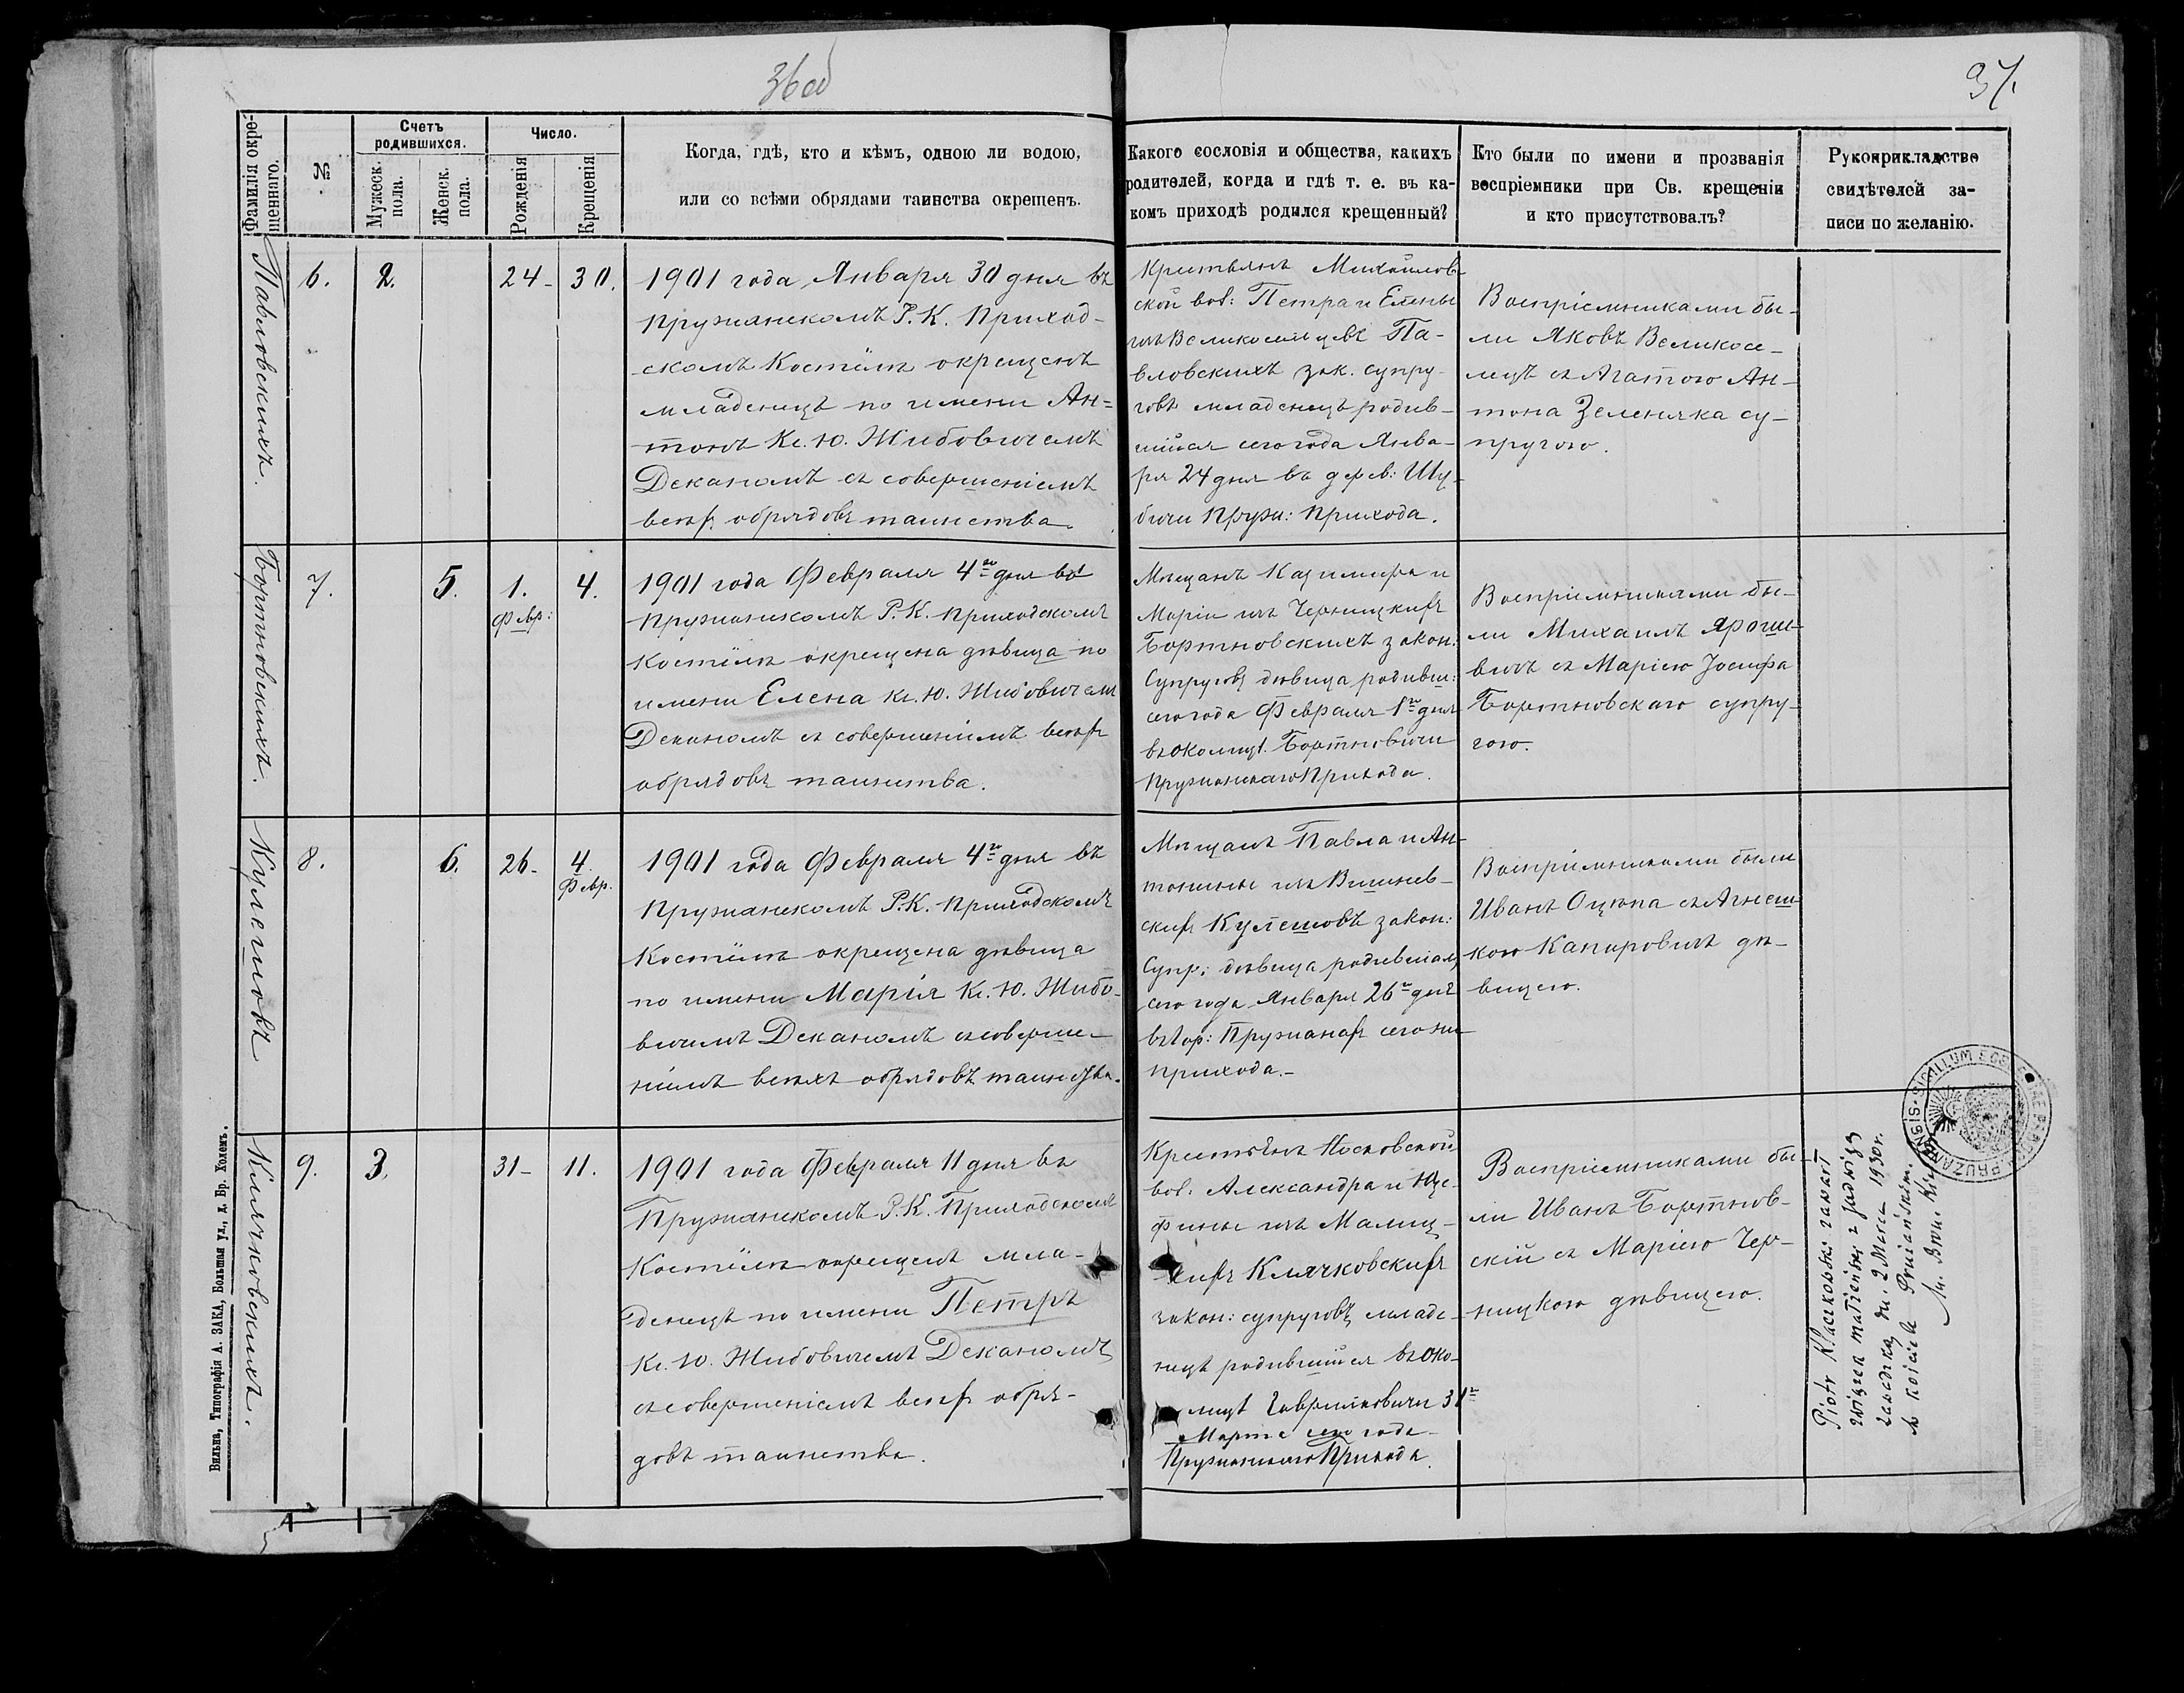 36об
37.
Фамилія окре-
щеннаго.
№
Счетъ
родившихся.
Мужеск.
пола.
Женск.
пола.
Число.
Рожденія
Крещенія
Когда, гдѣ, кто и кѣмъ, одною ли водою,
или со всѣми обрядами таинства окрещенъ.
Какого сословія и общества, какихъ
родителей, когда и гдѣ т. е. въ ка-
комъ приходѣ родился крещенный?
Кто были по имени и прозванія
воспріемники при Св. крещеніи
и кто присутствовалъ?
Рукоприкладство
свидѣтелей за-
писи по желанію.
Павловскихъ.
6.
2.
24-
30.
1901 года Января 30 дня въ
Пружанскомъ Р. К. Приход-
скомъ Костёлѣ окрещенъ
младенецъ по имени Ан=
тонъ Кс. Ю. Жибовичемъ
Деканомъ съ совершеніемъ
всѣх обрядовъ таинства.
Крестьянъ Михайлов-
ской вол: Петра и Елены
изъ Великосельцевъ Па-
вловскихъ зак. супру-
говъ младенецъ родив-
шійся сего года Янва-
ря 24 дня въ дерев: Шу-
бичи Пруж: Прихода.
Воспріемниками бы-
ли Яковъ Великосе-
лецъ съ Агатою Ан-
тона Зеленяка су-
пругою.
Бортновскихъ.
7.
5.
1.
Февр:
4.
1901 года Февраля 4го дня въ
Пружанскомъ Р. К. Приходскомъ
Костёлѣ окрещена дѣвица по
имени Елена Кс. Ю. Жибовичемъ
Деканомъ съ совершеніемъ всѣх
обрядовъ таинства.
Мѣщанъ Казимира и
Маріи изъ Черницкихъ
Бортновскихъ закон:
Супруговъ дѣвица родивш:
сего года Февраля 1го дня
въ околиц. Бортновичи
Пружанскаго Прихода.
Воспріемниками бы-
ли Михаилъ Яроше-
вичъ съ Маріею Іосифа
Бортновскаго супру-
гою.
Кулешовъ
8.
6.
26-
4.
Февр.
1901 года Февраля 4го дня въ
Пружанскомъ Р. К. Приходскомъ
Костёлѣ окрещена дѣвица
по имени Марія Кс. Ю. Жибо-
вичемъ Деканомъ съ соверше-
ніемъ всѣхъ обрядовъ таинства.
Мѣщанъ Павла и Ан-
тонины изъ Вишнев-
скихъ Кулешовъ закон:
Супр: дѣвица родившаяся
сего года Января 26го дня
въ гор: Пружанах сего же
прихода.-
Воспріемниками были
Иванъ Оцюпа съ Агнеш-
кою Капаровичъ дѣ-
вицею.
Клячковскихъ.
9.
3.
31-
11.
1901 года Февраля 11 дня въ
Пружанскомъ Р. К. Приходскомъ
Костёлѣ окрещенъ мла-
денецъ по имени Петръ
Кс. Ю. Жибовичемъ Деканомъ
съ совершеніемъ всѣх обря-
довъ таинства.
Крестьянъ Носковской
вол. Александра и Юзе-
фины изъ Малиц-
кихъ Клячковскихъ
закон: супруговъ младе-
нецъ родившійся въ око-
лицѣ Гавриловичи 31го
Марта сего года
Пружанскаго Прихода.
Воспріемниками бы-
ли Иванъ Бортнов-
скій съ Маріею Чер-
ницкою дѣвицею.
Piotr Klaczkowski zawarł
związek małżeński z Jadwigą
dn. 2 Marca 1930 r.
w kościele Prużańskim.
SIGILLUM ECCLESIAE PRUZANENSIS
Вильна, Типографія А. ЗАКА, Большая ул., д. Бр. Холемъ.